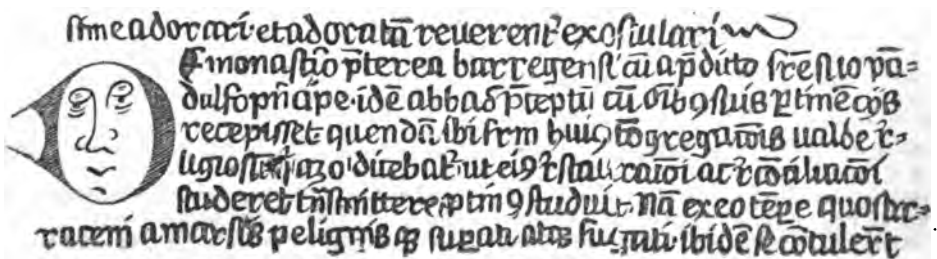 sime adorari et adoratā reverent̄ exosculari
De monastio p̄terea barregensi cū a p̄dicto frē suo pā=
dulfo pn̄cipe. idē abbas p̄ceptū cū oīb9 suis ptinēciis
recepisset quendā ibi frm hui9 cōgregatōis valde r̄=
ligiosū azo dicebat̄. ut ei9 rstauratōi ac
studeret ptin9 studuit. nā ex eo tēpe quo sar=
raceni a marsis supati atq3 fugati ibidē se cōtulert̄